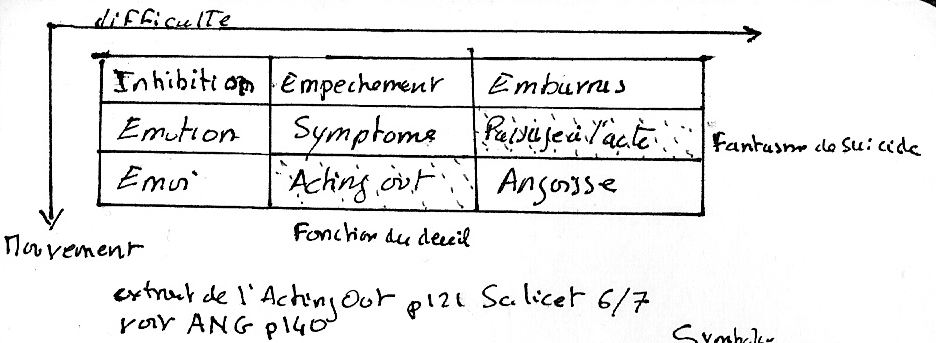 difficulTe
Inhibition Empechement Embarras
Emotion Symptome Passage a l'acte Fantasme de suicide
Emoi Acting out Angoisse
Mouvement
Fonction du deuil
extrait de l'Acting Out p121 Scilicet 6/7
voir ANG p140